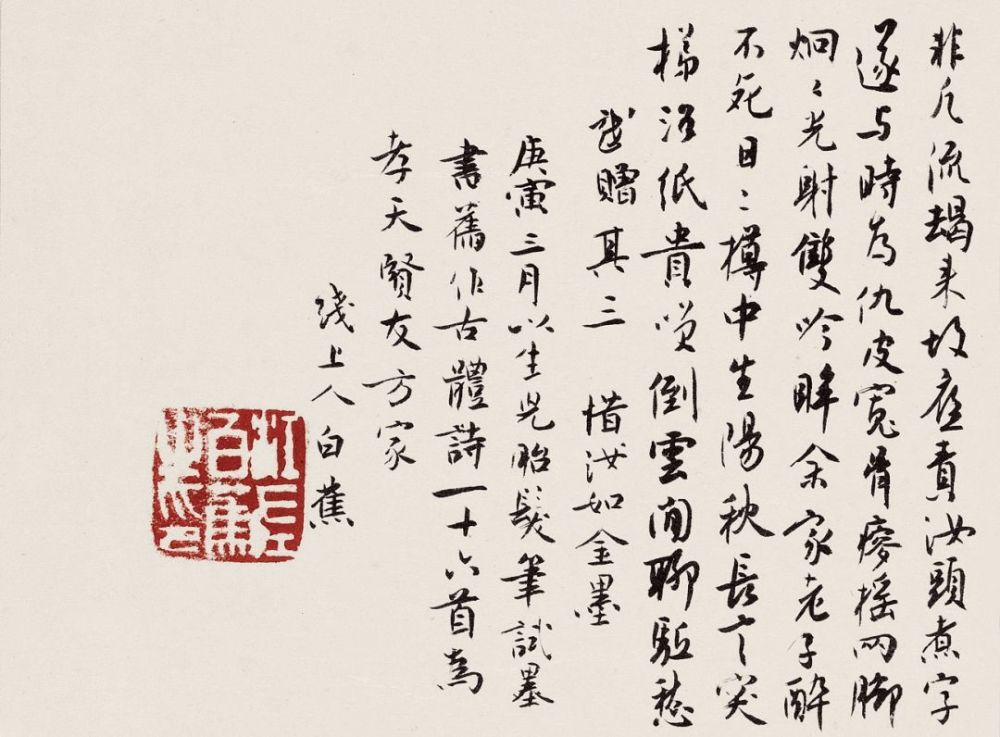 非凡流朅来故應責汝頭煮字
遂与時為仇皮寬骨瘳摇兩脚
炯〻光射雙吟眸余家老子醉
不死日〻樽中生陽秋長突
紙貴倒雲间聊駈愁
贈其三 惜汝如金墨
庚寅三月以生児胎髮筆試墨
書舊作古體詩一十六首為
孝天賢友方家
綫上人白蕉
江左
白蕉